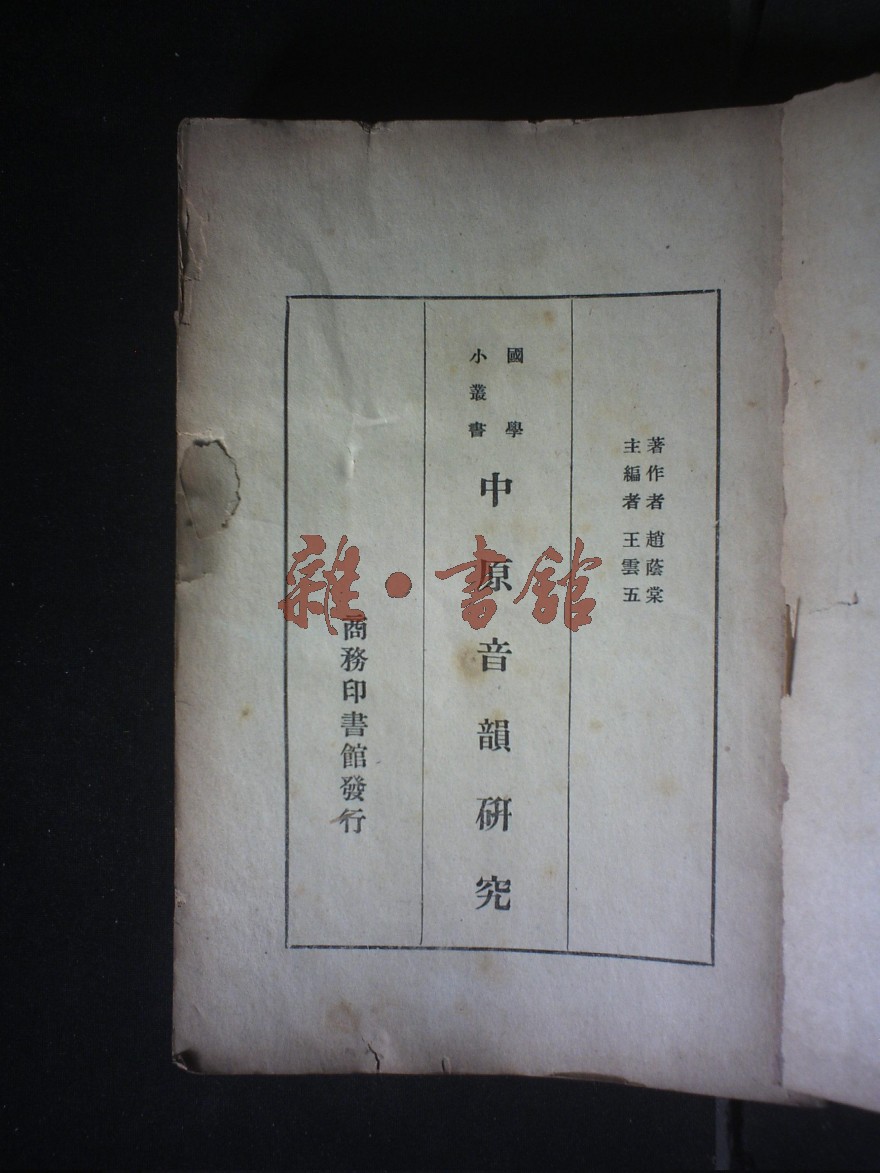 著作者 趙蔭棠
主編者 王雲五
國學
小叢書
中原音韻研究
商務印書館發行
雜·書館